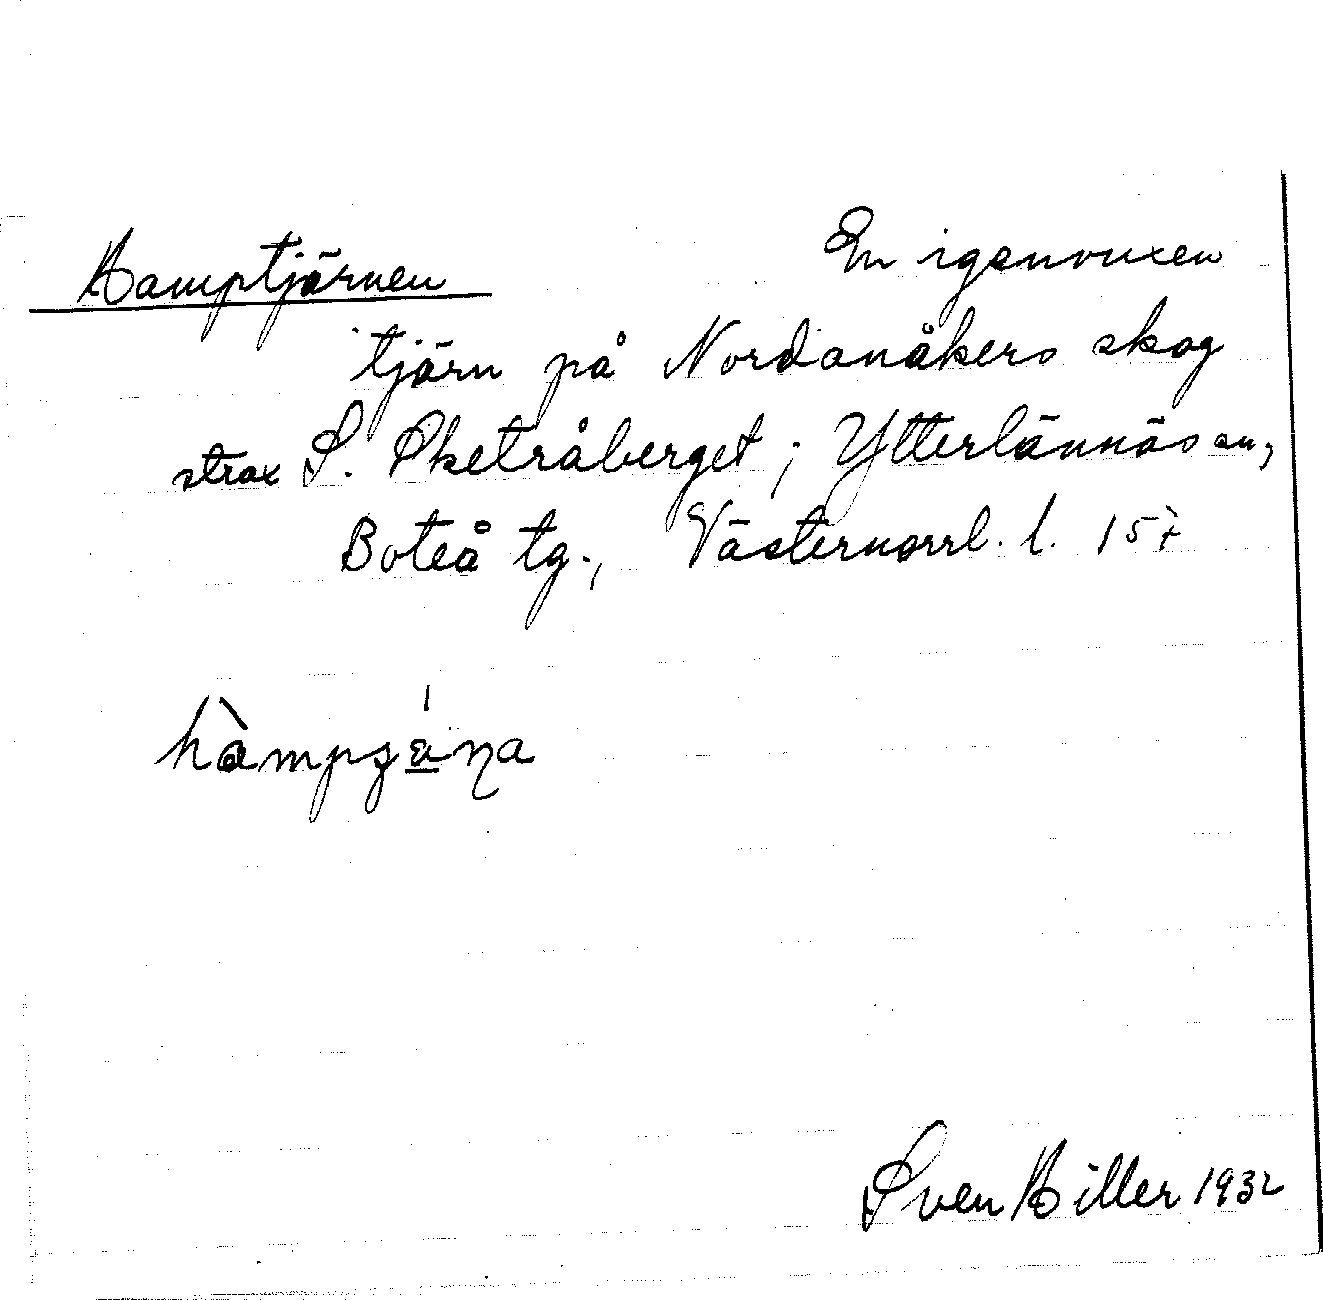 Hamptjärnen En igenvuxen
tjärn på Nordanåkers skog
strax S. Sketråberget; Ytterlännäs sn,
Boteå tg., Västernorrl. l. 157
hàmpȿána
Sven Hiller 1932